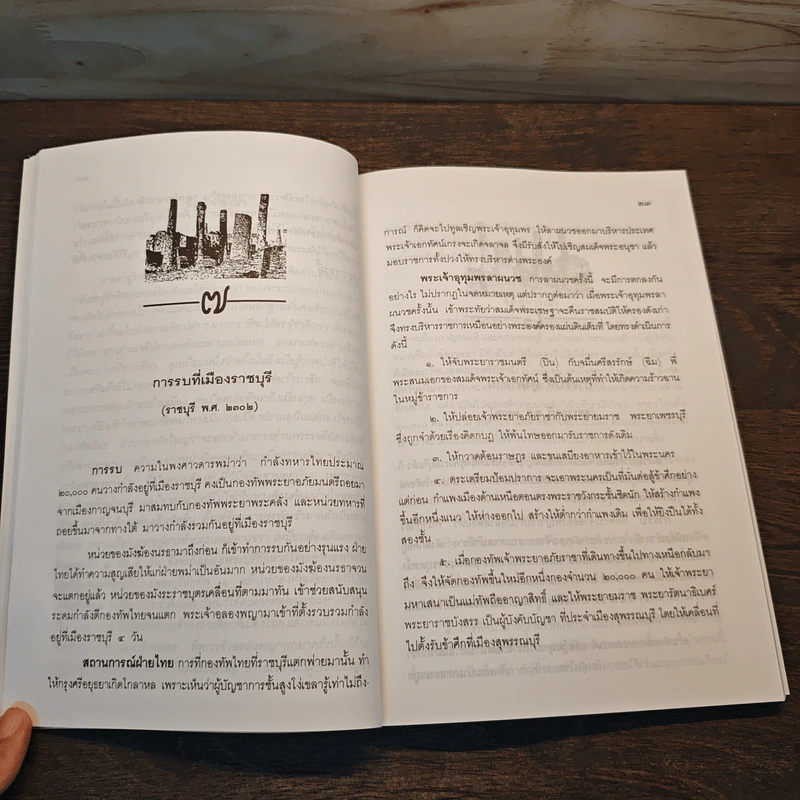 ๗
การรบที่เมืองราชบุรี
(ราชบุรี พ.ศ. ๒๓๐๒)
การรบ ความในพงศาวดารพม่าว่า กำลังทหารไทยประมาณ
๒๐,๐๐๐ คนวางกำลังอยู่ที่เมืองราชบุรี คงเป็นกองทัพพระยาอภัยมนตรีถอยมา
จากเมืองกาญจนบุรี มาสมทบกับกองทัพพระยาพระคลัง และหน่วยทหารที่
ถอยขึ้นมาจากทางใต้ มาวางกำลังรวมกันอยู่ที่เมืองราชบุรี
หน่วยของมังฆ้องนรธามาถึงก่อน ก็เข้าทำการรบกันอย่างรุนแรง ฝ่าย
ไทยได้ทำความสูญเสียให้แก่ฝ่ายพม่าเป็นอันมาก หน่วยของมังฆ้องนรธาจวน
จะแตกอยู่แล้ว หน่วยของมังระราชบุตรเคลื่อนที่ตามมาทัน เข้าช่วยสนับสนุน
ระดมกำลังตีกองทัพไทยจนแตก พระเจ้าอลองพญามาเข้าที่ตั้งรวบรวมกำลัง
อยู่ที่เมืองราชบุรี ๔ วัน
สถานการณ์ฝ่ายไทย การที่กองทัพไทยที่ราชบุรีแตกพ่ายมานั้น ทำ
ให้กรุงศรีอยุธยาเกิดโกลาหล เพราะเห็นว่าผู้บัญชาการชั้นสูงโง่เขลารู้เท่าไม่ถึง-
๒๗
การณ์ ก็คิดจะไปทูลเชิญพระเจ้าอุทุมพร ให้ลาผนวชออกมาบริหารประเทศ
พระเจ้าเอกทัศน์เกรงจะเกิดจลาจล จึงมีรับสั่งให้ไปเชิญสมเด็จพระอนุชา แล้ว
มอบราชการทั้งปวงให้ทรงบริหารต่างพระองค์
พระเจ้าอุทุมพรลาผนวช การลาผนวชครั้งนี้ จะมีการตกลงกัน
อย่างไร ไม่ปรากฏในจดหมายเหตุ แต่ปรากฏต่อมาว่า เมื่อพระเจ้าอุทุมพรลา
ผนวชครั้งนั้น เข้าพระทัยว่าสมเด็จพระเชษฐาจะคืนราชสมบัติให้ครองดังเก่า
จึงทรงบริหารราชการเหมือนอย่างพระองค์ครองแผ่นดินเดิมที่ โดยทรงดำเนินการ
ดังนี้
๑. ให้จับพระยาราชมนตรี (ปิ่น) กับจมื่นศรีสรรักษ์ (ฉิม) พี่
พระสนมเอกของสมเด็จพระเจ้าเอกทัศน์ ซึ่งเป็นต้นเหตุที่ทำให้เกิดความร้าวฉาน
ในหมู่ข้าราชการ
๒. ให้ปล่อยเจ้าพระยาอภัยราชากับพระยายมราช พระยาเพชรบุรี
ซึ่งถูกจำด้วยเรื่องคิดกบฏ ให้พ้นโทษออกมารับราชการดังเดิม
๓. ให้กวาดต้อนราษฎร และขนเสบียงอาหารเข้าไว้ในพระนคร
๔. ตระเตรียมป้อมปราการ จะเอาพระนครเป็นที่มั่นต่อสู้ข้าศึกอย่าง
แต่ก่อน กำแพงเมืองด้านเหนือตอนตรงพระราชวังกระชั้นชิดนัก ให้สร้างกำแพง
ขึ้นอีกหนึ่งแนว ให้ห่างออกไป สร้างให้ต่ำกว่ากำแพงเดิม เพื่อให้ยิงปืนได้ทั้ง
สองชั้น
๕. เมื่อกองทัพเจ้าพระยาอภัยราชาที่เดินทางขึ้นไปทางเหนือกลับมา
ถึง จึงให้จัดกองทัพขึ้นใหม่อีกหนึ่งกองจำนวน ๒๐,๐๐๐ คน ให้เจ้าพระยา
มหาเสนาเป็นแม่ทัพถืออาญาสิทธิ์ และให้พระยายมราช พระยารัตนาธิเบศร์
พระยาราชบังสรร เป็นผู้บังคับบัญชา ที่ประจำเมืองสุพรรณบุรี โดยให้เคลื่อนที่
ไปตั้งรับข้าศึกที่เมืองสุพรรณบุรี